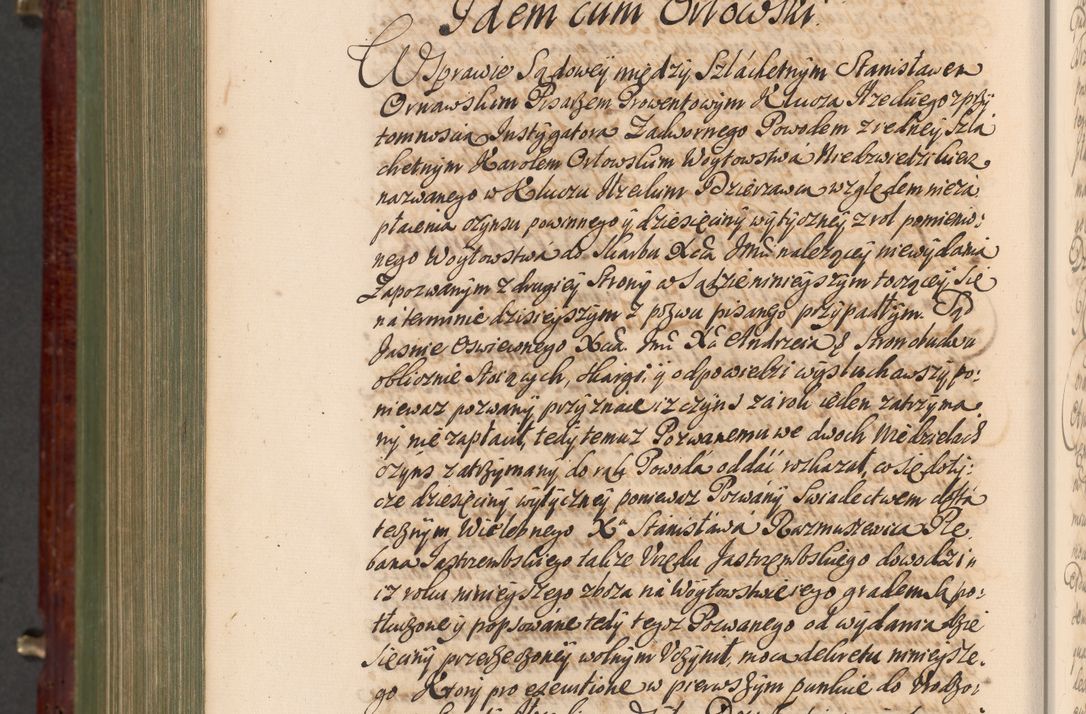 Idem cum Orłowski.
W Sprawie Sądowey między Szláchetnym Stanisławem
Ornawskim Pisarzem Prowentowym Klucza Ilzeckiego z przy
tomnoscią Instygatora Zadwornego Powodem z iedney, Szla
chetnym Karolem Orłowskim Woytowstwá Niedzwiedzikierz
nazwanego w Kluczu Ilzeckim Dzierzawcą względem nieza
płacenia czynsu powinnego y dziesięciny wytyczney z rol pomienio:
nego Woytowstwa do Skarbu Xcia Jmci nalezącey niewydania
Zapozwanym z drugiey Strony w Sądzie ninieyszym toczącey się
na terminie dzisieyszym z pozwu pisanego przypadłym. Sąd
Jasnie Oswieconego Xcia Jmci Xa Andrzeia &c Stron obudwu
oblicznie Stoiących, skargi y odpowiedzi wysłuchawszy po:
niewaz pozwany przyznaie iz czyns zá rok ieden zatrzyma
ny nie zapłacił, tedy temuz Pozwanemu we dwoch Niedzielach
czyns zatrzymany do rąk Powoda oddać rozkazał, co się doty:
cze dziesięciny wytyczney poniewaz Pozwány Swiadectwem dosta
tecznym Wielebnego Xa Stanisławá Razmusiewica Ple
bana Jastrzembskiego także Urzędu Jastrzembskiego dowodzi
iz roku ninieyszego zboza ná Woytowstwie iego gradem są po:
tłuczone y popsowáne tedy tegoz Pozwanego od wydania dzie
sięciny przerzeczoney wolnym Uczynił, mocą dekretu ninieysze:
go Ktory pro executione w pierwszym punkcie do Urodzo: